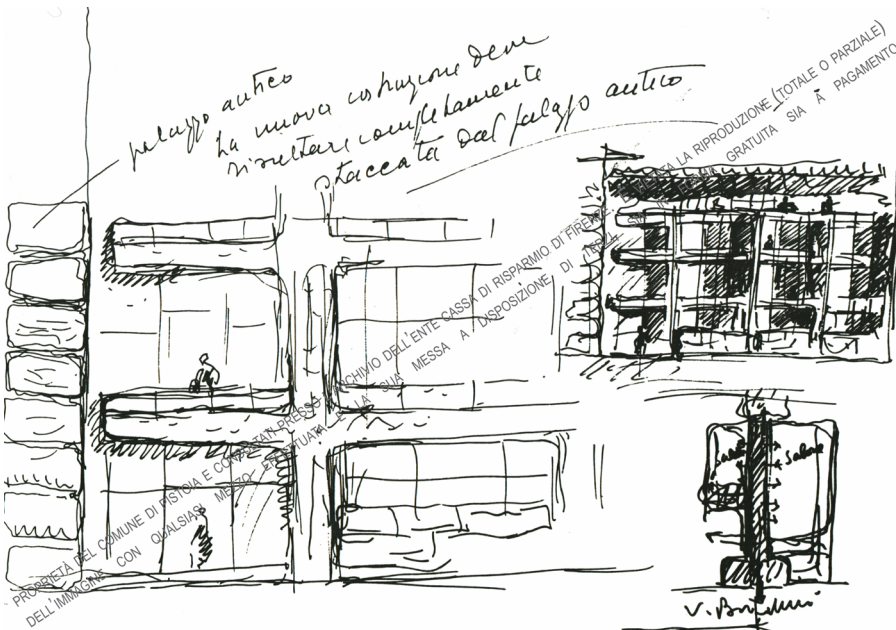 palazzo antico
La nuova costruzione deve
risultare completamente
staccata dal palazzo antico
PROPRIETÀ DEL COMUNE DI PISTOIA E CONSULTATI PRESSO ARCHIVIO DELL'ENTE CASSA DI RISPARMIO DI FIRENZE. LA RIPRODUZIONE (TOTALE O PARZIALE)
DELL'IMMAGINE CON QUALSIASI MEZZO EFFETTUATA LA SUA MESSA A DISPOSIZIONE DI SIA GRATUITA SIA A PAGAMENTO
Salone